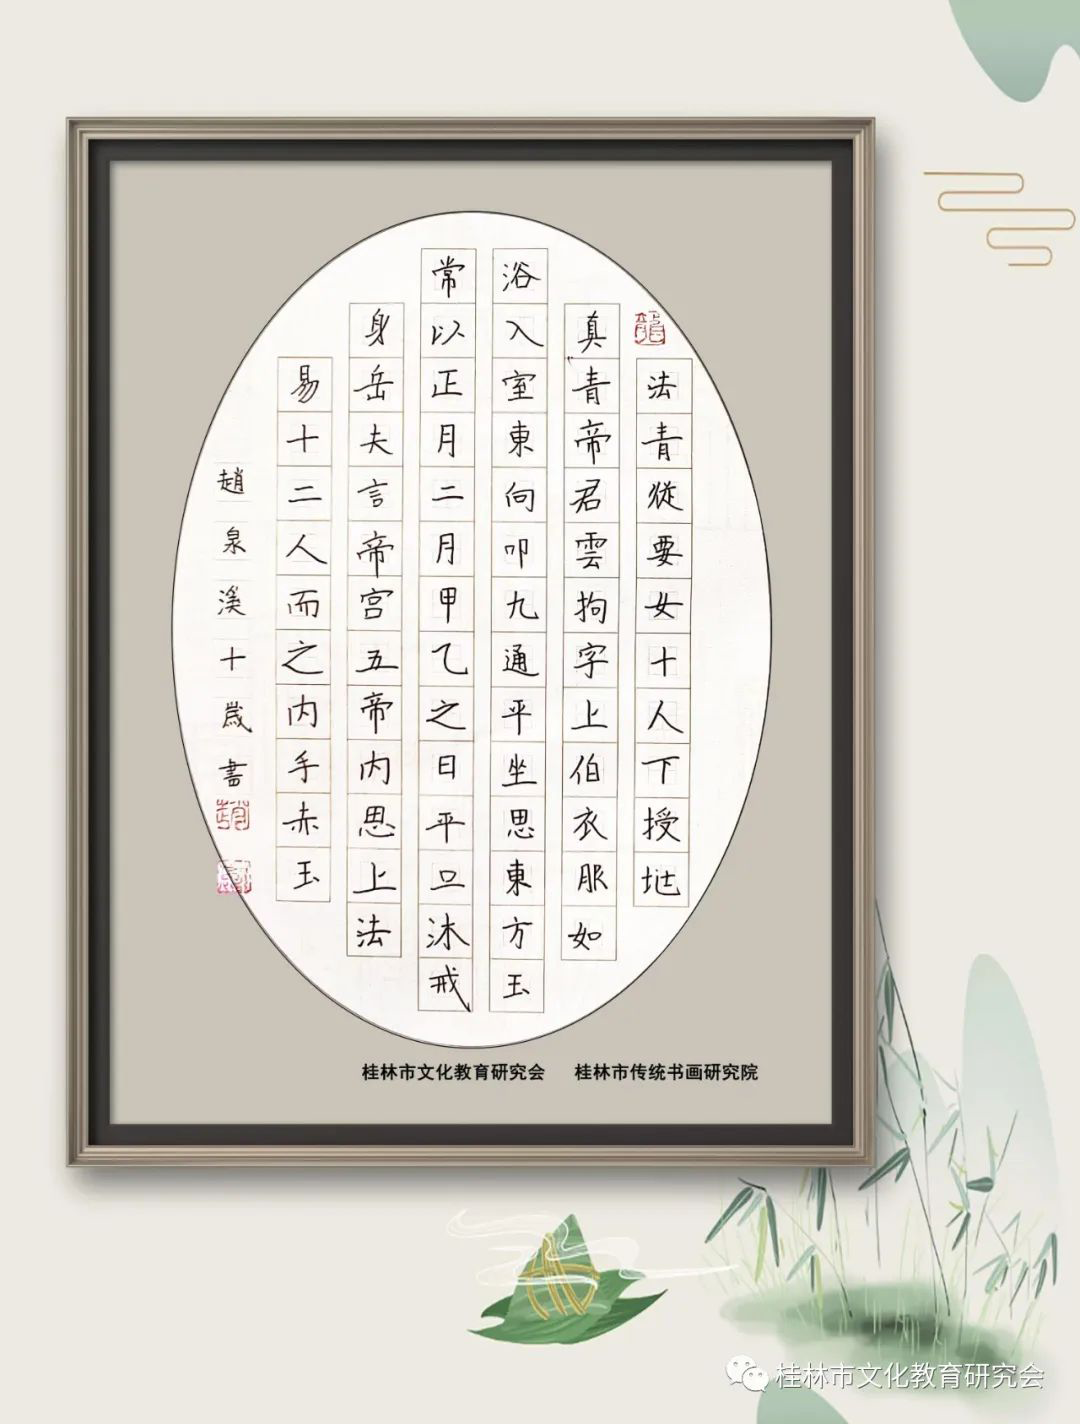 法青從要女十人下授地
真青帝君雲拘字上伯衣服如
浴入室東向叩九通平坐思東方玉
常以正月二月甲乙之日平旦沐戒
身岳夫言帝宫五帝内思上法
易十二人而之内手赤玉
趙泉溪十歲書
桂林市文化教育研究会 桂林市传统书画研究院
桂林市文化教育研究会